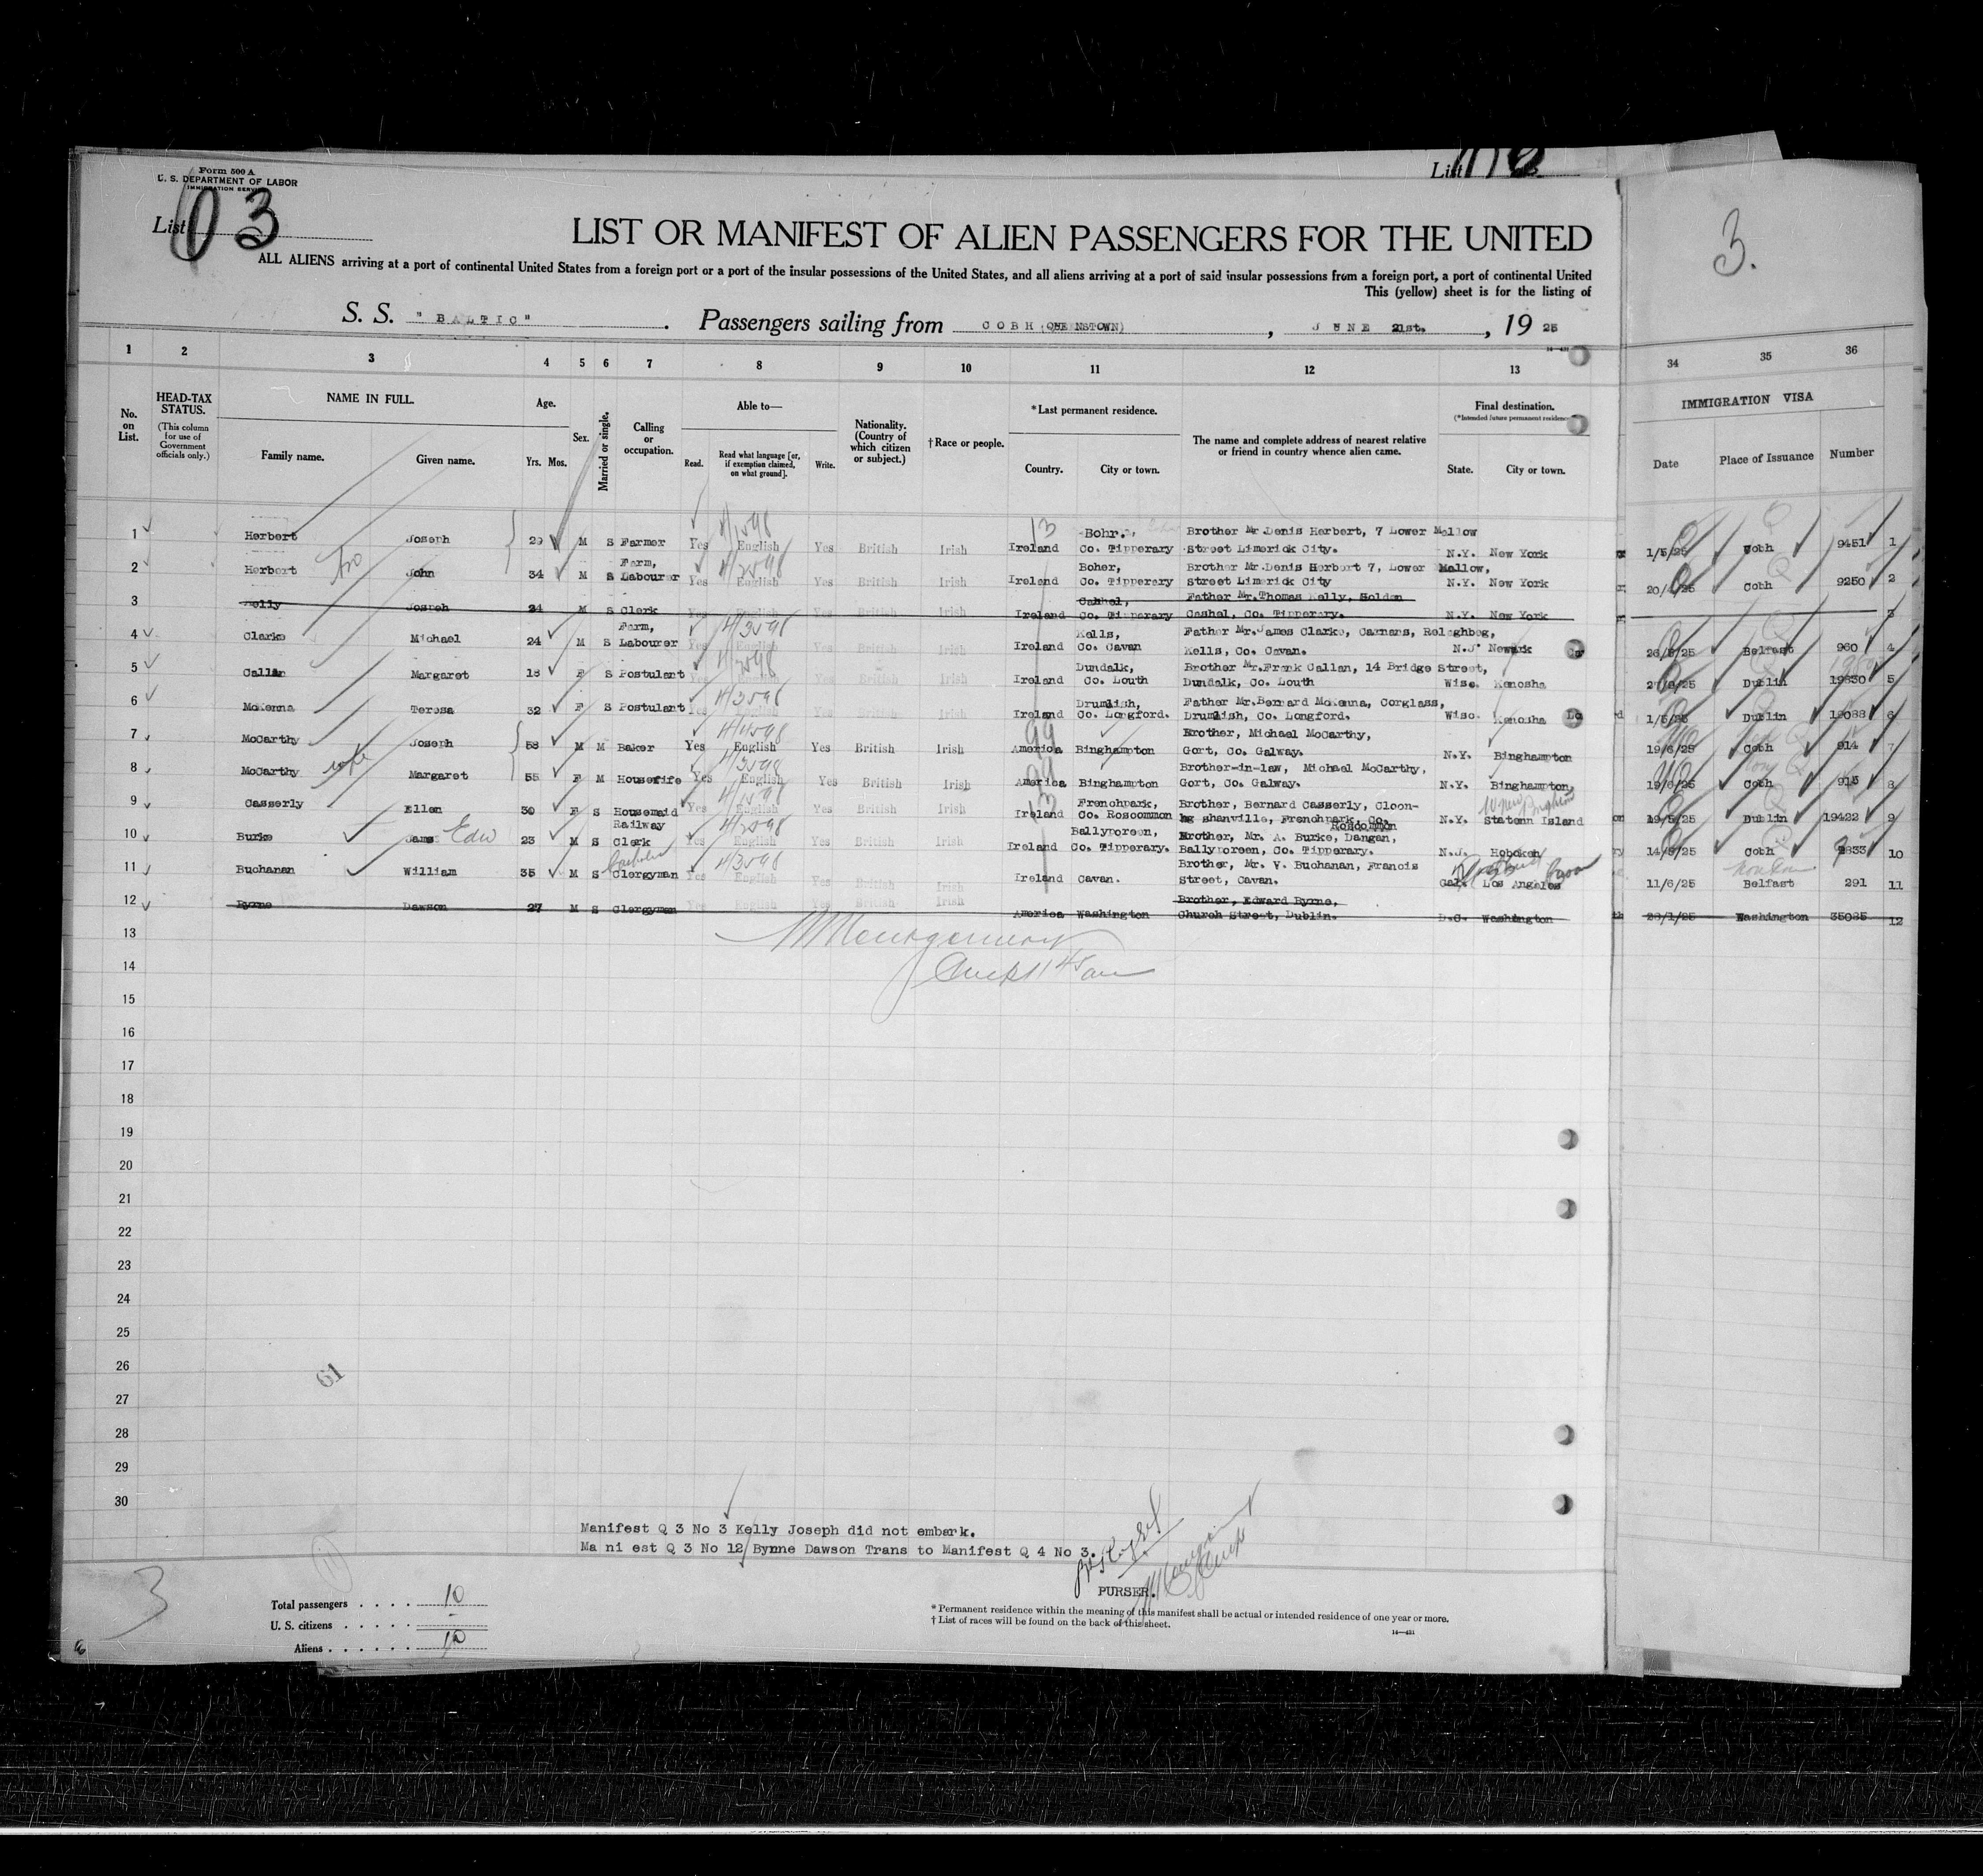 Form 500 A
U. S. DEPARTMENT OF LABOR
IMMIGRATION SERVICE
List 3
List
3.
LIST OR MANIFEST OF ALIEN PASSENGERS FOR THE UNITED
ALL ALIENS arriving at a port of continental United States from a foreign port or a port of the insular possessions of the United States, and all aliens arriving at a port of said insular possessions from a foreign port, a port of continental United
This (yellow) sheet is for the listing of
S. S. "BALTIC" . Passengers sailing from COBH (QUEENSTOWN) , JUNE 21st. , 19 25
1 2 3 4 5 6 7 8 9 10 11 12 13 34 35 36
No. on List.
HEAD-TAX STATUS.
(This column for use of Government officials only.)
NAME IN FULL.
Family name. Given name.
Age.
Yrs. Mos.
Sex.
Married or single.
Calling or occupation.
Able to—
Read. Read what language [or, if exemption claimed, on what ground]. Write.
Nationality. (Country of which citizen or subject.)
†Race or people.
*Last permanent residence.
Country. City or town.
The name and complete address of nearest relative or friend in country whence alien came.
Final destination.
(*Intended future permanent residence)
State. City or town.
IMMIGRATION VISA
Date Place of Issuance Number
1 Herbert Joseph 29 M S Farmer Yes English Yes British Irish Ireland Co. Tipperary Brother Mr Denis Herbert, 7 Lower Mallow Street Limerick City. N.Y. New York 1/5/25 Cobh 9451 1
2 Herbert John 34 M S Farm, Labourer Yes English Yes British Irish Ireland Boher, Co. Tipperary Brother Mr Denis Herbert 7, Lower Mallow, Street Limerick City N.Y. New York Cobh 9250 2
3 Kelly Joseph 24 M S Clerk Yes English Yes British Irish Ireland Cashel, Co. Tipperary Father Mr.Thomas Kelly, Golden Cashel, Co. Tipperary. N.Y. New York 3
4 Clarke Michael 24 M S Farm, Labourer Yes English Yes British Irish Ireland Kells, Co. Cavan Father Mr.James Clarke, Carnans, Relaghbeg, Kells, Co. Cavan. N.J. Newark Belfast 960 4
5 Callan Margaret 18 F S Postulant Yes English Yes British Irish Ireland Dundalk, Co. Louth Brother Mr.Frank Callan, 14 Bridge Street, Dundalk, Co. Louth Wisc. Kenosha Dublin 5
6 McKenna Teresa 32 F S Postulant Yes English Yes British Irish Ireland Drumlish, Co. Longford. Father Mr.Bernard McKenna, Corglass, Drumlish, Co. Longford. Wisc. Kenosha 1/5/25 Dublin 6
7 McCarthy Joseph 58 M M Baker Yes English Yes British Irish America Binghampton Brother, Michael McCarthy, Gort, Co. Galway. N.Y. Binghampton 19/6/25 Cobh 914 7
8 McCarthy wife Margaret 55 F M Housefife Yes English Yes British Irish America Binghampton Brother-in-law, Michael McCarthy, Gort, Co. Galway. N.Y. Binghampton, 19/6/25 Cobh 915 8
9 Casserly Ellen 30 F S Housemaid Yes English Yes British Irish Ireland Frenchpark, Co. Roscommon Brother, Bernard Casserly, Cloon-shanville, Frenchpark, Co. Roscommon N.Y. Statenn Island 19/5/25 Dublin 19422 9
10 Burke James Edw 23 M S Railway Clerk Yes English Yes British Irish Ireland Ballyporeen, Co. Tipperary. Brother, Mr. A. Burke, Dangan, Ballyporeen, Co. Tipperary. N.J. Hoboken 14/5/25 Cobh 10
11 Buchanan William 35 M S Clergyman Yes English Yes British Irish Ireland Cavan. Brother, Mr. V. Buchanan, Francis Street, Cavan. Cal. Los Angeles 11/6/25 Belfast 291 11
12 Byrne Dawson 27 M S Clergyman Yes English Yes British Irish America Washington Brother, Edward Byrne, Church Street, Dublin. D.C. Washington Washington 35085 12
13
14
15
16
17
18
19
20
21
22
23
24
25
26
61
27
28
29
30
Manifest Q 3 No 3 Kelly Joseph did not embark.
Ma ni est Q 3 No 12 Byrne Dawson Trans to Manifest Q 4 No 3.
PURSER.
3
Total passengers . . . . 10
U. S. citizens . . . . . -
Aliens . . . . . . 10
* Permanent residence within the meaning of this manifest shall be actual or intended residence of one year or more.
† List of races will be found on the back of this sheet.
14—431